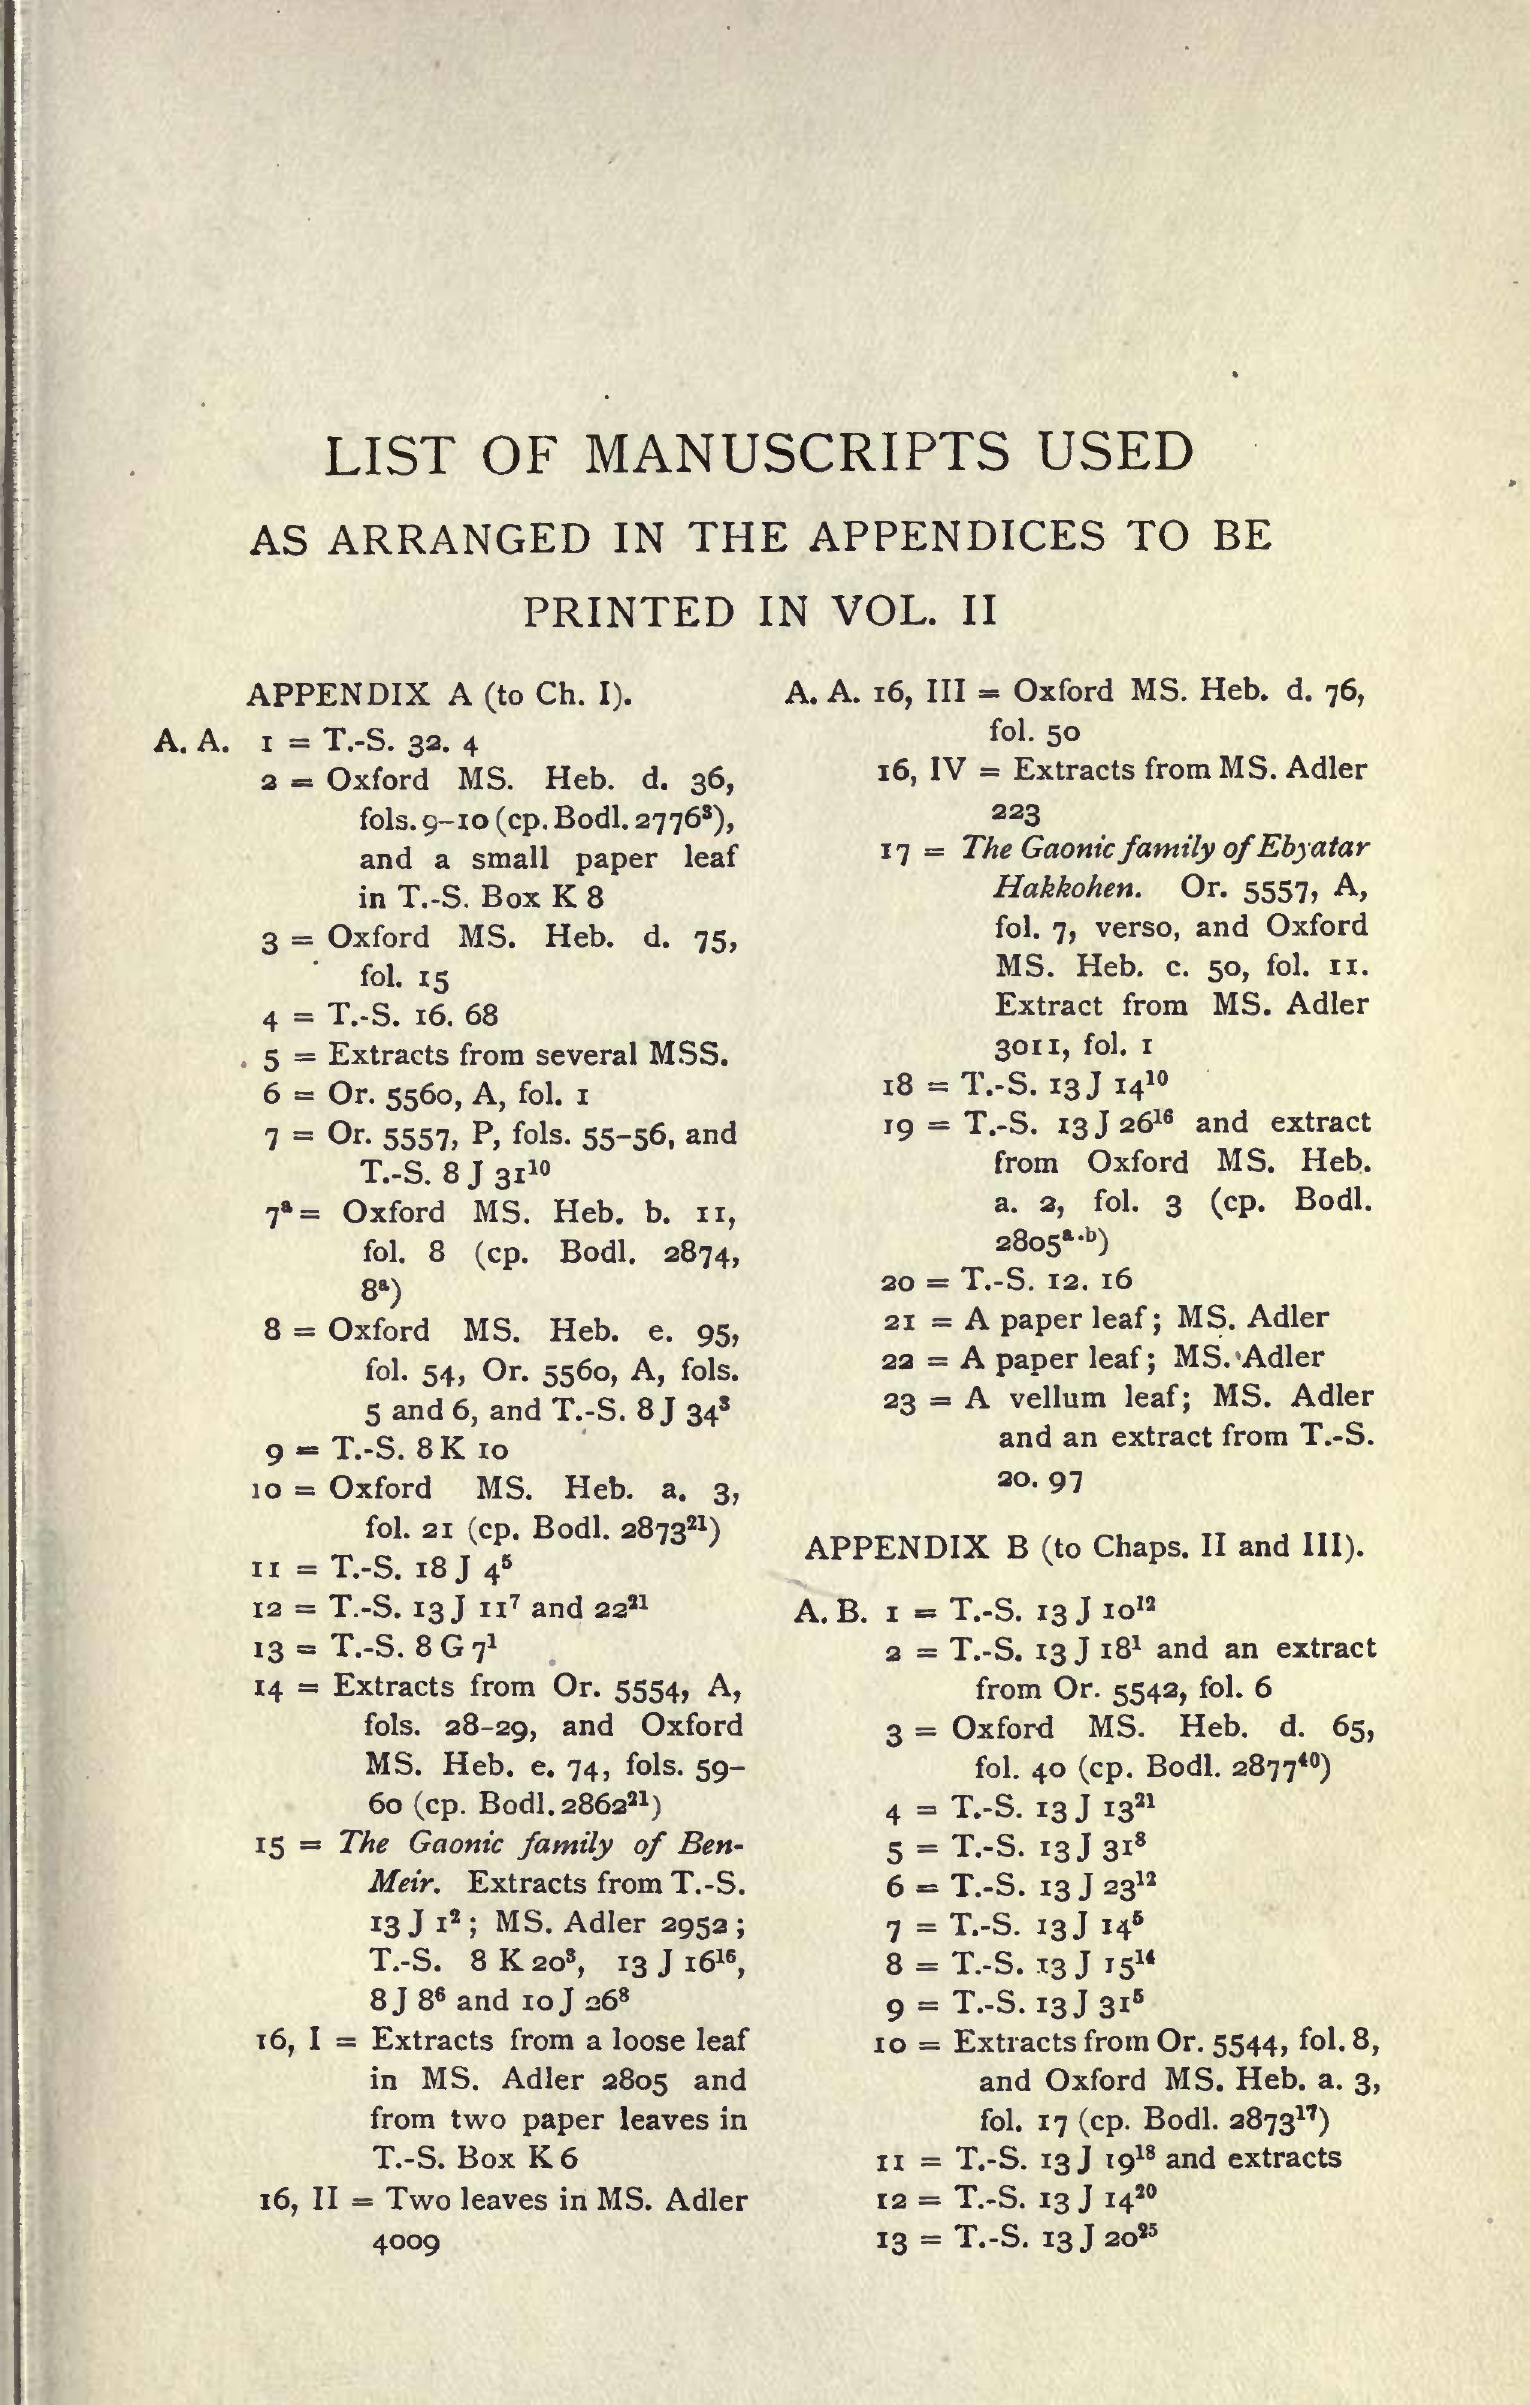 LIST OF MANUSCRIPTS USED
AS ARRANGED IN THE APPENDICES TO BE
PRINTED IN VOL. II
APPENDIX A (to Ch. I).
A. A. 1 = T.-S. 32. 4
2 = Oxford MS. Heb. d. 36,
fols. 9–10 (cp. Bodl. 2776³),
and a small paper leaf
in T.-S. Box K 8
3 = Oxford MS. Heb. d. 75,
fol. 15
4 = T.-S. 16. 68
5 = Extracts from several MSS.
6 = Or. 5560, A, fol. 1
7 = Or. 5557, P, fols. 55–56, and
T.-S. 8 J 31¹⁰
7ᵃ = Oxford MS. Heb. b. 11,
fol. 8 (cp. Bodl. 2874,
8ᵃ)
8 = Oxford MS. Heb. e. 95,
fol. 54, Or. 5560, A, fols.
5 and 6, and T.-S. 8 J 34³
9 = T.-S. 8 K 10
10 = Oxford MS. Heb. a. 3,
fol. 21 (cp. Bodl. 2873²¹)
11 = T.-S. 18 J 4⁵
12 = T.-S. 13 J 11⁷ and 22²¹
13 = T.-S. 8 G 7¹
14 = Extracts from Or. 5554, A,
fols. 28–29, and Oxford
MS. Heb. e. 74, fols. 59–
60 (cp. Bodl. 2862²¹)
15 = The Gaonic family of Ben-
Meir. Extracts from T.-S.
13 J 1²; MS. Adler 2952;
T.-S. 8 K 20³, 13 J 16¹⁶,
8 J 8⁶ and 10 J 26⁸
16, I = Extracts from a loose leaf
in MS. Adler 2805 and
from two paper leaves in
T.-S. Box K 6
16, II = Two leaves in MS. Adler
4009
A. A. 16, III = Oxford MS. Heb. d. 76,
fol. 50
16, IV = Extracts from MS. Adler
223
17 = The Gaonic family of Ebyatar
Hakkohen. Or. 5557, A,
fol. 7, verso, and Oxford
MS. Heb. c. 50, fol. 11.
Extract from MS. Adler
3011, fol. 1
18 = T.-S. 13 J 14¹⁰
19 = T.-S. 13 J 26¹⁶ and extract
from Oxford MS. Heb.
a. 2, fol. 3 (cp. Bodl.
2805ᵃ·ᵇ)
20 = T.-S. 12. 16
21 = A paper leaf; MS. Adler
22 = A paper leaf; MS. Adler
23 = A vellum leaf; MS. Adler
and an extract from T.-S.
20. 97
APPENDIX B (to Chaps. II and III).
A. B. 1 = T.-S. 13 J 10¹²
2 = T.-S. 13 J 18¹ and an extract
from Or. 5542, fol. 6
3 = Oxford MS. Heb. d. 65,
fol. 40 (cp. Bodl. 2877⁴⁰)
4 = T.-S. 13 J 13²¹
5 = T.-S. 13 J 31⁸
6 = T.-S. 13 J 23¹²
7 = T.-S. 13 J 14⁵
8 = T.-S. 13 J 15¹⁴
9 = T.-S. 13 J 31⁵
10 = Extracts from Or. 5544, fol. 8,
and Oxford MS. Heb. a. 3,
fol. 17 (cp. Bodl. 2873¹⁷)
11 = T.-S. 13 J 19¹⁸ and extracts
12 = T.-S. 13 J 14²⁰
13 = T.-S. 13 J 20²⁵